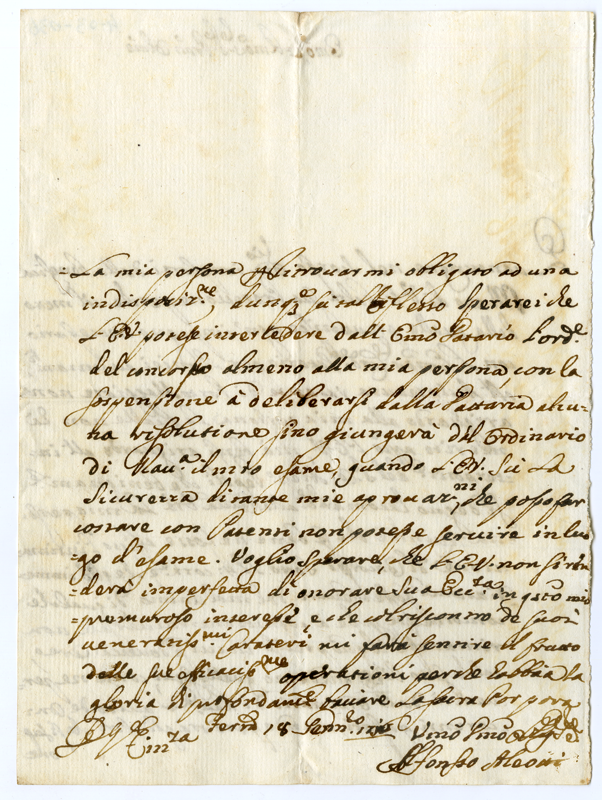 La mia persona ritrouarmi obligato ad una
indisposiz.ne, dunq.e si tal riflesso sperarei che
l'E.V. potesse intercedere dall' Emo Datario l'ord.e
del concorso almeno alla mia persona, con la
sospensione à deliberarsi dalla Dataria alcu=
na risolutione sino giungerà dal Ordinario
di il mio esame, quando l'E.V. la
sicurezza di tante mie aprouaz.ni, che posso far
costare con Patenti non potesse seruire in luo=
=go d'esame. Voglio sperare, che l'E.V. non si ren=
=derà imperfetta di onorare Sua Ecc.za in q.sto mio
=premuroso interesse, e che col riscontro de suoi
ueneratiss.mi Carateri mi farà sentire il frutto
delle sue efficaciss.me operationi perche habbia la
gloria di profondam.te baciare la sacra Porpora
Di V. Em.za Fermo 18 Genn.ro
Alfonso